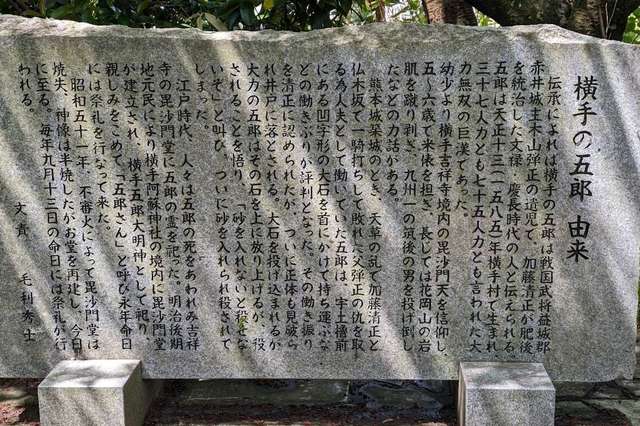 横手の五郎 由来
伝承によれば横手の五郎は戦国武将益城郡
赤井城主木山弾正の遺児で、加藤清正が肥後
を統治した文禄、慶長時代の人と伝えられる。
五郎は天正十三(一五八五)年横手村で生まれ、
三十七人力とも七十五人力とも言われた大
力無双の巨漢であった。
幼少より横手吉祥寺境内の毘沙門天を信仰し、
五〜六歳で米俵を担ぎ、長じては花岡山の岩
肌を蹴り剥ぎ、九州一の筑後の男を投げ倒し
たなどの力話がある。
熊本城築城のとき、天草の乱で加藤清正と
仏木坂で一騎打ちして敗れた父弾正の仇を取
る為人夫として働いていた五郎は、宇土櫓前
にある凹字形の大石を首にかけて持ち運ぶな
どの働きぶりが評判となった。その働き振り
を清正に認められたが、ついに正体も見破ら
れ井戸に落とされる。大石を投げ込まれるが
大力の五郎はその石を上に放り上げるが、役
されることを悟り、「砂を入れないと殺せな
いぞ」と叫び、ついに砂を入れられ役されて
しまった。
江戸時代、人々は五郎の死をあわれみ吉祥
寺の毘沙門堂に五郎の霊を祀った。明治後期
地元民により横手阿蘇神社の境内に毘沙門堂
が建立され、横手五郎大明神として祀り、
親しみをこめて「五郎さん」と呼び永年命日
には祭礼を行なって来た。
昭和五十一年、不審火によって毘沙門堂は
焼失、神像は半焼したがお堂を再建し、今日
に至る。毎年九月十三日の命日には祭礼が行
われる。
文責 毛利秀士